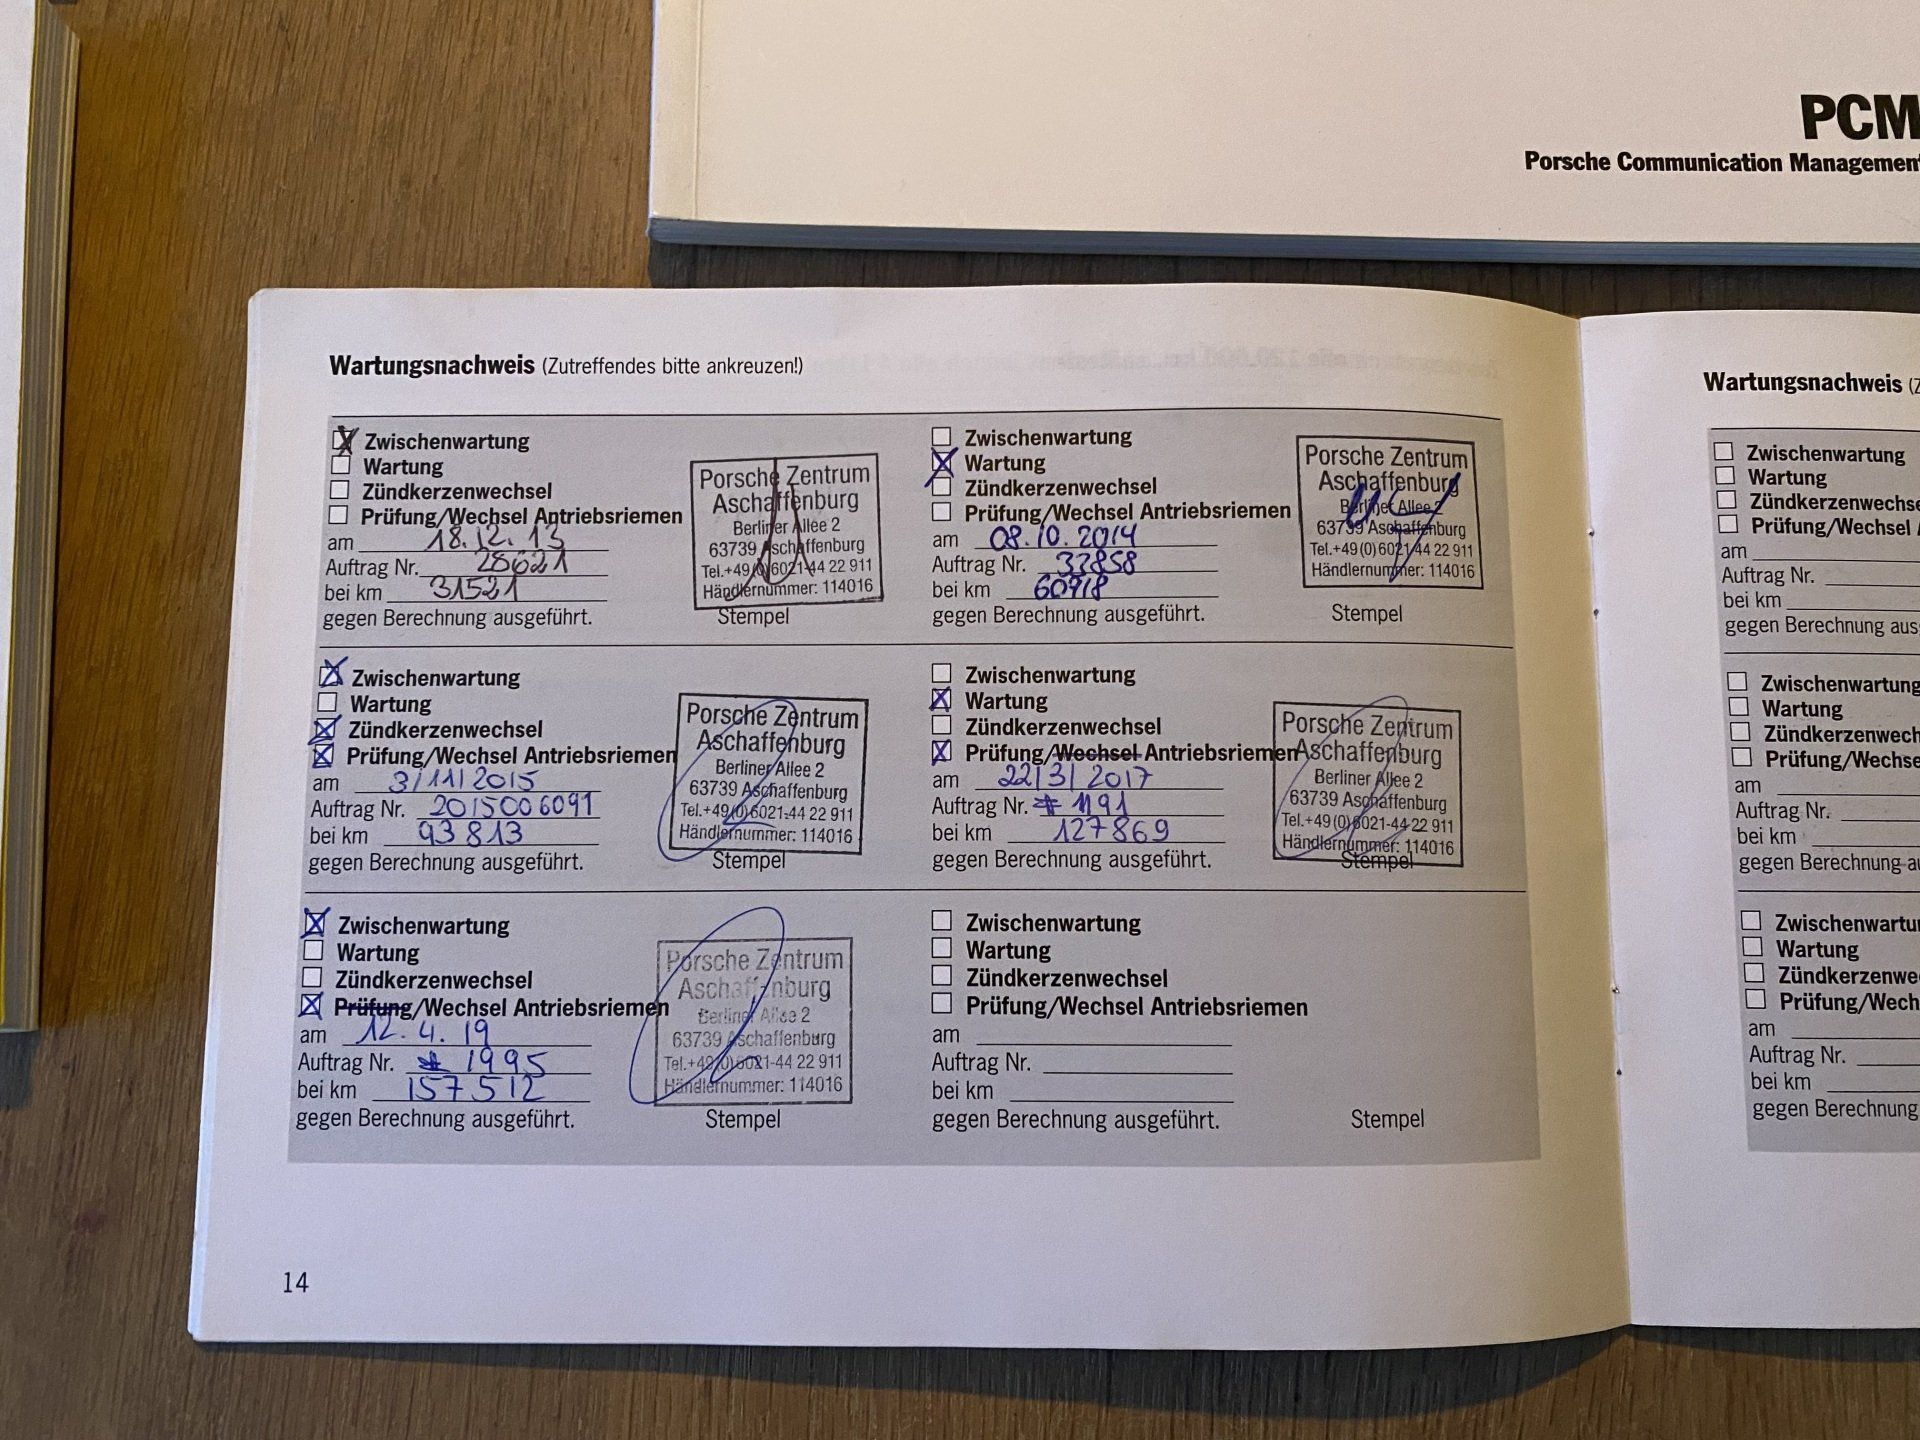 PCM
Porsche Communication Management
Wartungsnachweis (Zutreffendes bitte ankreuzen!)
Zwischenwartung
Wartung
Zündkerzenwechsel
Prüfung/Wechsel Antriebsriemen
am 18.12.13
Auftrag Nr. 28621
bei km 31521
gegen Berechnung ausgeführt.
Porsche Zentrum
Aschaffenburg
Berliner Allee 2
63739 Aschaffenburg
Tel.+49(0)6021-44 22 911
Händlernummer: 114016
Stempel
Zwischenwartung
Wartung
Zündkerzenwechsel
Prüfung/Wechsel Antriebsriemen
am 08.10.2014
Auftrag Nr. 33858
bei km 60918
gegen Berechnung ausgeführt.
Porsche Zentrum
Aschaffenburg
Berliner Allee 2
63739 Aschaffenburg
Tel.+49(0)6021-44 22 911
Händlernummer: 114016
Stempel
Zwischenwartung
Wartung
Zündkerzenwechsel
Prüfung/Wechsel Antriebsriemen
am 3/11/2015
Auftrag Nr. 2015006091
bei km 93813
gegen Berechnung ausgeführt.
Porsche Zentrum
Aschaffenburg
Berliner Allee 2
63739 Aschaffenburg
Tel.+49(0)6021-44 22 911
Händlernummer: 114016
Stempel
Zwischenwartung
Wartung
Zündkerzenwechsel
Prüfung/Wechsel Antriebsriemen
am 22/3/2017
Auftrag Nr. # 1191
bei km 127869
gegen Berechnung ausgeführt.
Porsche Zentrum
Aschaffenburg
Berliner Allee 2
63739 Aschaffenburg
Tel.+49(0)6021-44 22 911
Händlernummer: 114016
Stempel
Zwischenwartung
Wartung
Zündkerzenwechsel
Prüfung/Wechsel Antriebsriemen
am 12.4.19
Auftrag Nr. # 1995
bei km 157512
gegen Berechnung ausgeführt.
Porsche Zentrum
Aschaffenburg
Berliner Allee 2
63739 Aschaffenburg
Tel.+49(0)6021-44 22 911
Händlernummer: 114016
Stempel
Zwischenwartung
Wartung
Zündkerzenwechsel
Prüfung/Wechsel Antriebsriemen
am
Auftrag Nr.
bei km
gegen Berechnung ausgeführt.
Stempel
14
Wartungsnachweis (Z
Zwischenwartung
Wartung
Zündkerzenwechse
Prüfung/Wechsel
am
Auftrag Nr.
bei km
gegen Berechnung aus
Zwischenwartung
Wartung
Zündkerzenwech
Prüfung/Wechse
am
Auftrag Nr.
bei km
gegen Berechnung au
Zwischenwartu
Wartung
Zündkerzenwe
Prüfung/Wech
am
Auftrag Nr.
bei km
gegen Berechnung